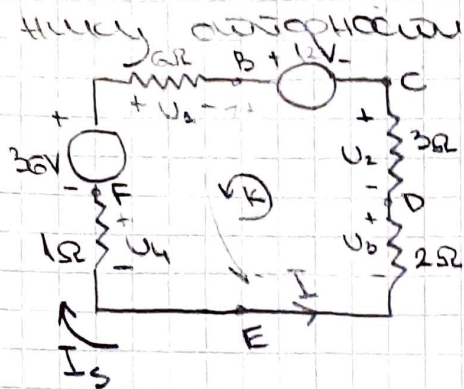 6Ω B + 12V - C
+ U1 -
+
36V
-
F
+
1Ω U4
-
K
+
U2 3Ω
-
D
+
U3 2Ω
-
I
E
Is